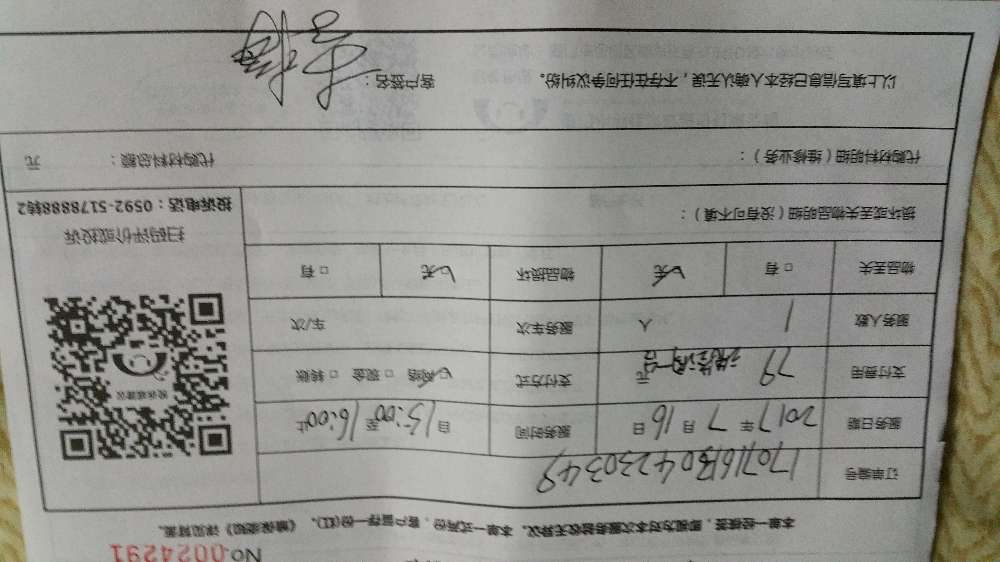 No.0024291
本单一经接签，即视为对本次服务验收无异议。本单一式两份，客户留存一份(红)。《维保须知》详见背面。
订单编号 1707161304230349
服务日期 2017 年 7 月 16 日 服务时间 自 15:00 至 16:00 止
支付费用 79 元 支付方式 ☑网络 □现金 □转账
服务人数 1 人 服务车次 车/次
物品丢失 □有 ☑无 物品损坏 ☑无 □有
损坏或丢失物品明细（没有可不填）：
扫码评价或投诉
投诉电话：0592-5178888转2
代购材料明细（维修业务）： 代购材料总额： 元
以上填写信息已经本人确认无误，不存在任何争议纠纷。 客户签名：